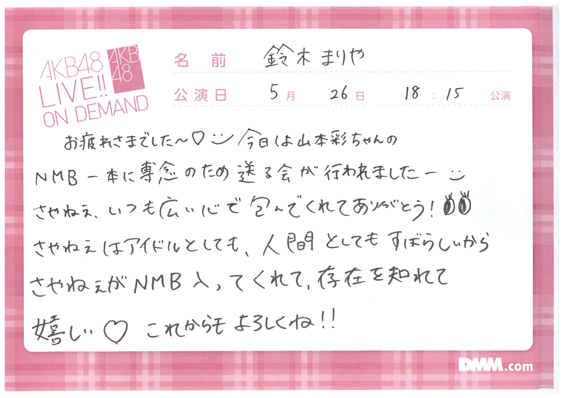 AKB48
LIVE!!
ON DEMAND
AKB
48
名前 鈴木まりや
公演日 5月 26日 18:15 公演
お疲れさまでした～♡ 今日は山本彩ちゃんの
NMB一本に専念のため送る会が行われましたー
さやねぇ、いつも広い心で包んでくれてありがとう!
さやねぇはアイドルとしても、人間としてもすばらしいから
さやねぇがNMB入ってくれて、存在を知れて
嬉しい♡ これからもよろしくね!!
DMM.com